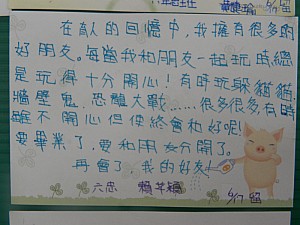 在敵人的回憶中,我擁有很多的
好朋友。每當我和朋友一起玩時總
是玩得十分開心!有時玩躲貓貓
牆壁鬼、恐龍大戰……很多很多,有時
雖不開心但使終會和好呢!
要畢業了,要和朋友分開了。
再會了,我的好友!
六忠 賴
6/17 留